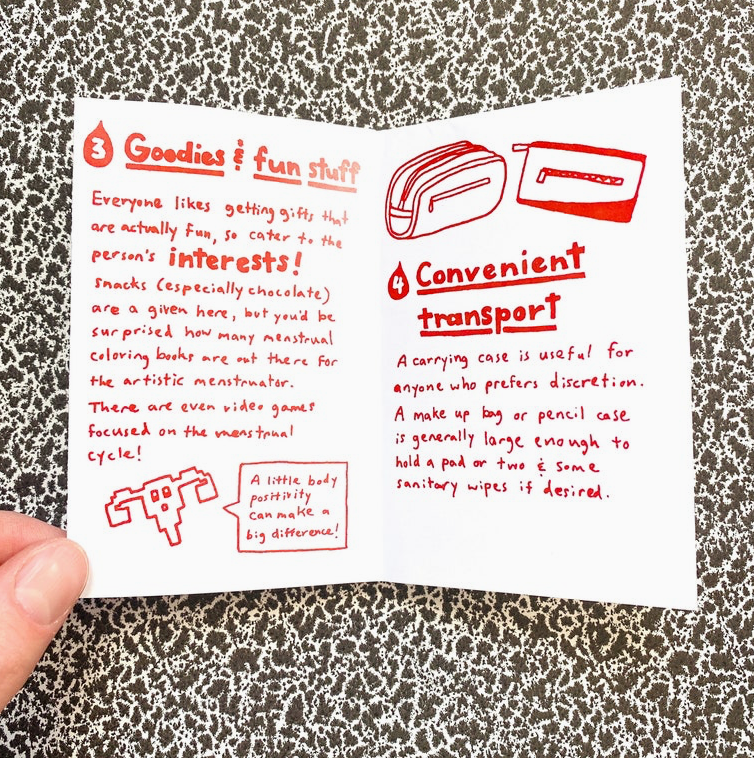 3 Goodies & fun stuff
Everyone likes getting gifts that
are actually fun, so cater to the
person's interests!
Snacks (especially chocolate)
are a given here, but you'd be
surprised how many menstrual
coloring books are out there for
the artistic menstruator.
There are even video games
focused on the menstrual
cycle!
A little body
positivity
can make a
big difference!
4 Convenient
transport
A carrying case is useful for
anyone who prefers discretion.
A make up bag or pencil case
is generally large enough to
hold a pad or two & some
sanitary wipes if desired.